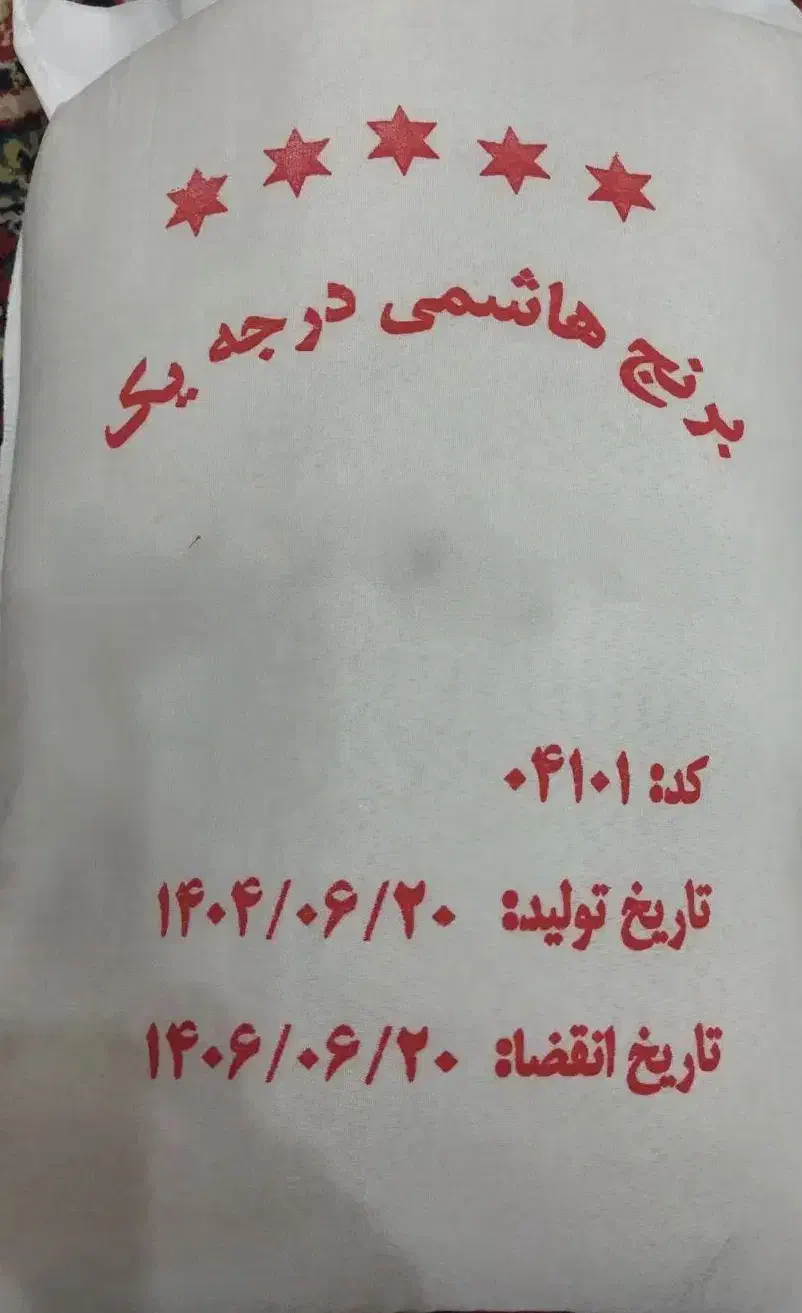 برنج هاشمی درجه یک
کد: ۰۴۱۰۱
تاریخ تولید: ۱۴۰۴/۰۶/۲۰
تاریخ انقضا: ۱۴۰۶/۰۶/۲۰